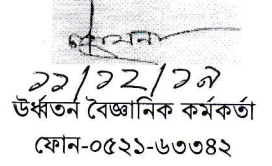 ১১/১২/১৯
উর্ধ্বতন বৈজ্ঞানিক কর্মকর্তা
ফোন-০৫২১-৬৩৩৪২